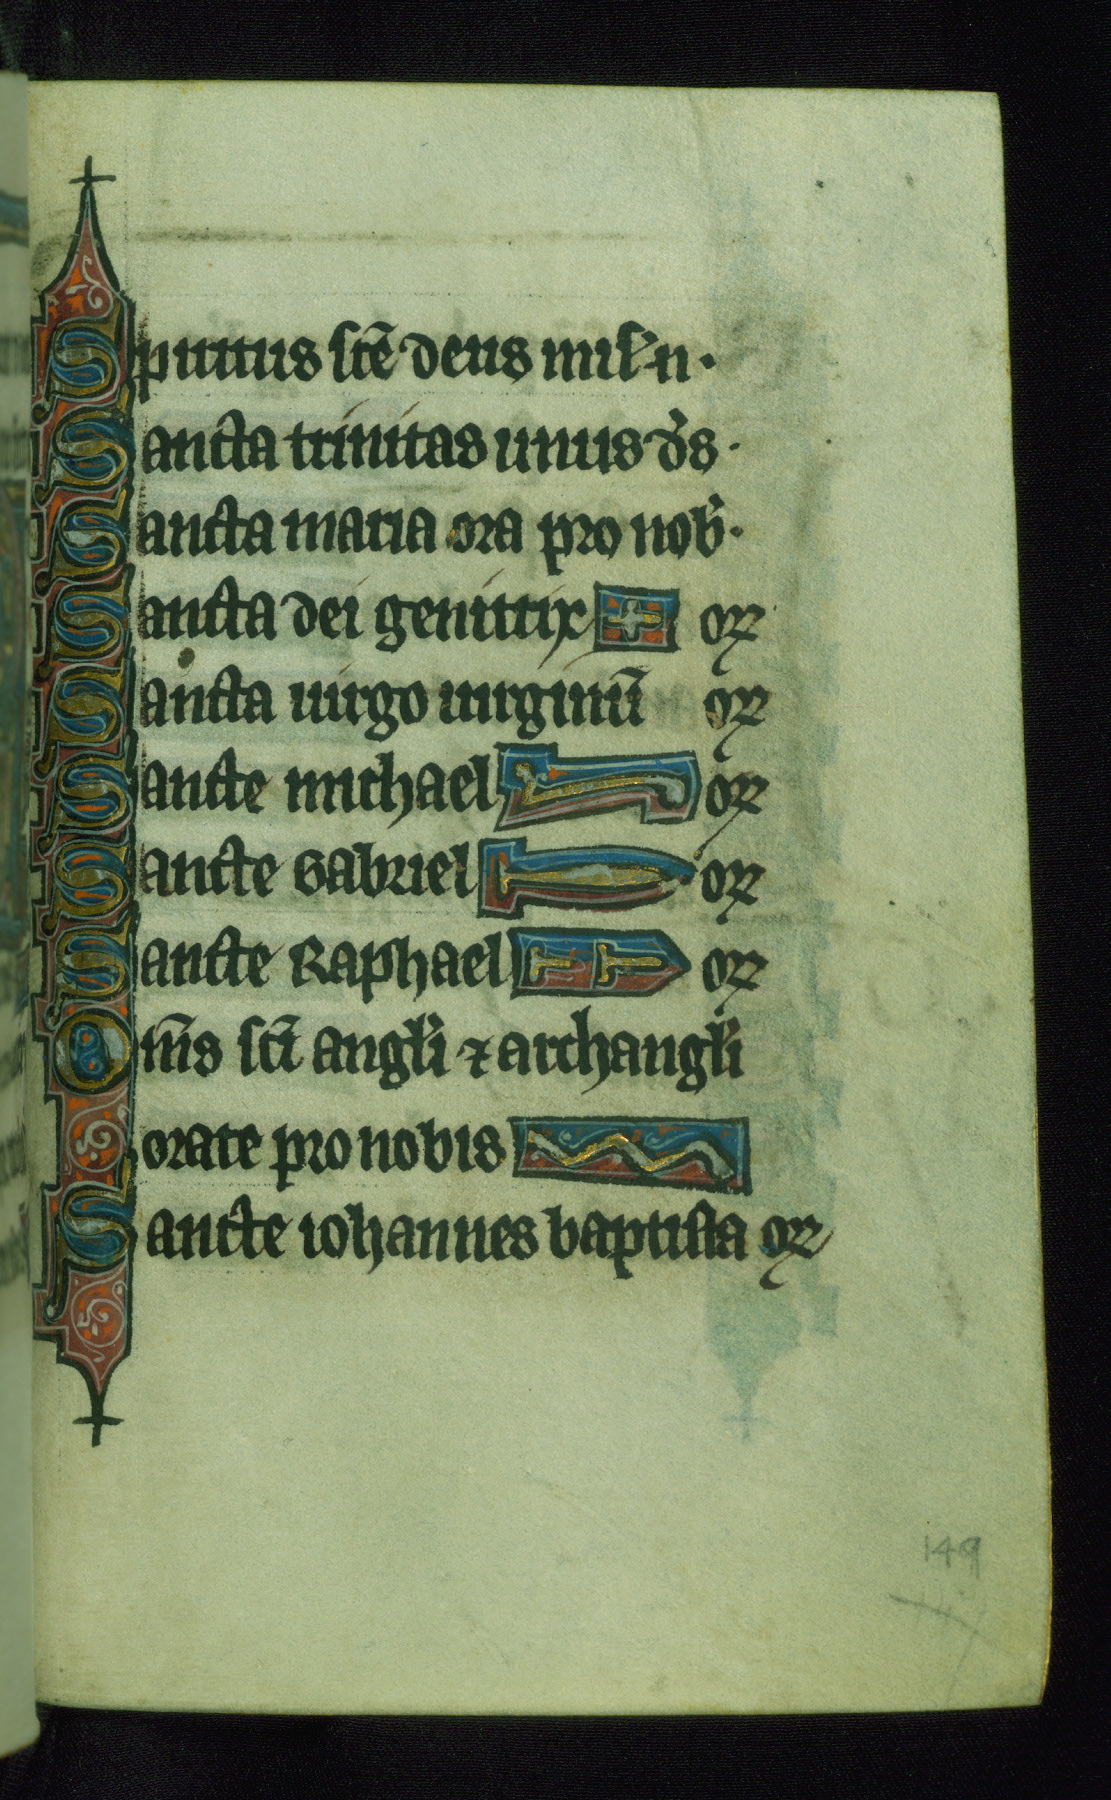 Spiritus sc̄e deus mis̾ n̾·
Sancta trinitas unus d̾s·
Sancta maria ora pro nob̾·
Sancta dei genitrix or
Sancta uirgo uirginū or
Sancte michael or
Sancte Gabriel or
Sancte Raphael or
Om̄s sc̄i angl̾i ⁊ archangl̾i
orate pro nobis
Sancte iohannes baptista or
149